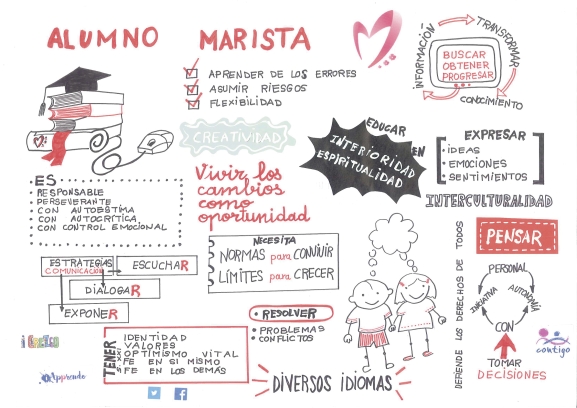 ALUMNO MARISTA
APRENDER DE LOS ERRORES
ASUMIR RIESGOS
FLEXIBILIDAD
INFORMACIÓN
TRANSFORMAR
CONOCIMIENTO
BUSCAR
OBTENER
PROGRESAR
CREATIVIDAD
EDUCAR
EN
INTERIORIDAD
ESPIRITUALIDAD
EXPRESAR
IDEAS
EMOCIONES
SENTIMIENTOS
INTERCULTURALIDAD
ES
RESPONSABLE
PERSEVERANTE
CON AUTOESTIMA
CON AUTOCRÍTICA
CON CONTROL EMOCIONAL
Vivir los
cambios
como
oportunidad
NECESITA
NORMAS para CONVIVIR
LÍMITES para CRECER
ESTRATEGIAS
COMUNICACIÓN
ESCUCHAR
DIALOGAR
EXPONER
DEFIENDE LOS DERECHOS DE TODOS
PENSAR
PERSONAL
INICIATIVA
AUTONOMÍA
CON
TOMAR
DECISIONES
RESOLVER
PROBLEMAS
CONFLICTOS
TENER
IDENTIDAD
VALORES
OPTIMISMO VITAL
FE EN SI MISMO
FE EN LOS DEMÁS
DIVERSOS IDIOMAS
contigo